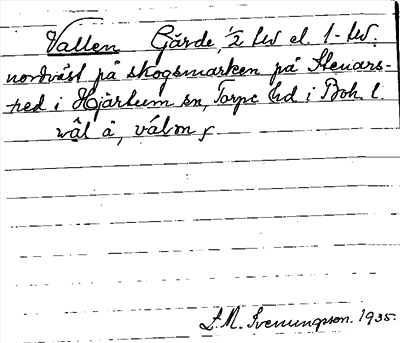 Vallen Gärde, 1/2 km el. 1 - km.
nordväst på skogsmarken på Stenars-
-red i Hjärtum sn, Torpe hd i Boh. l.
väl å, válm
L. M. Svenungsson. 1935.